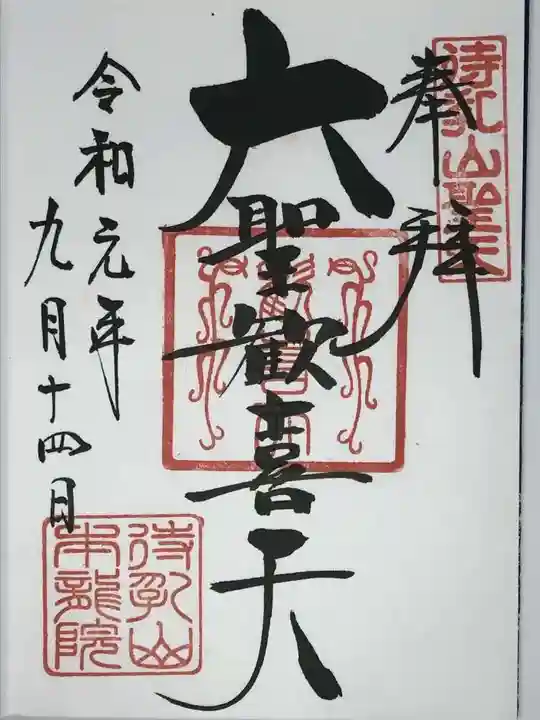 待乳山聖天
奉拝
大聖歓喜天
令和元年
九月十四日
待乳山
本龍院